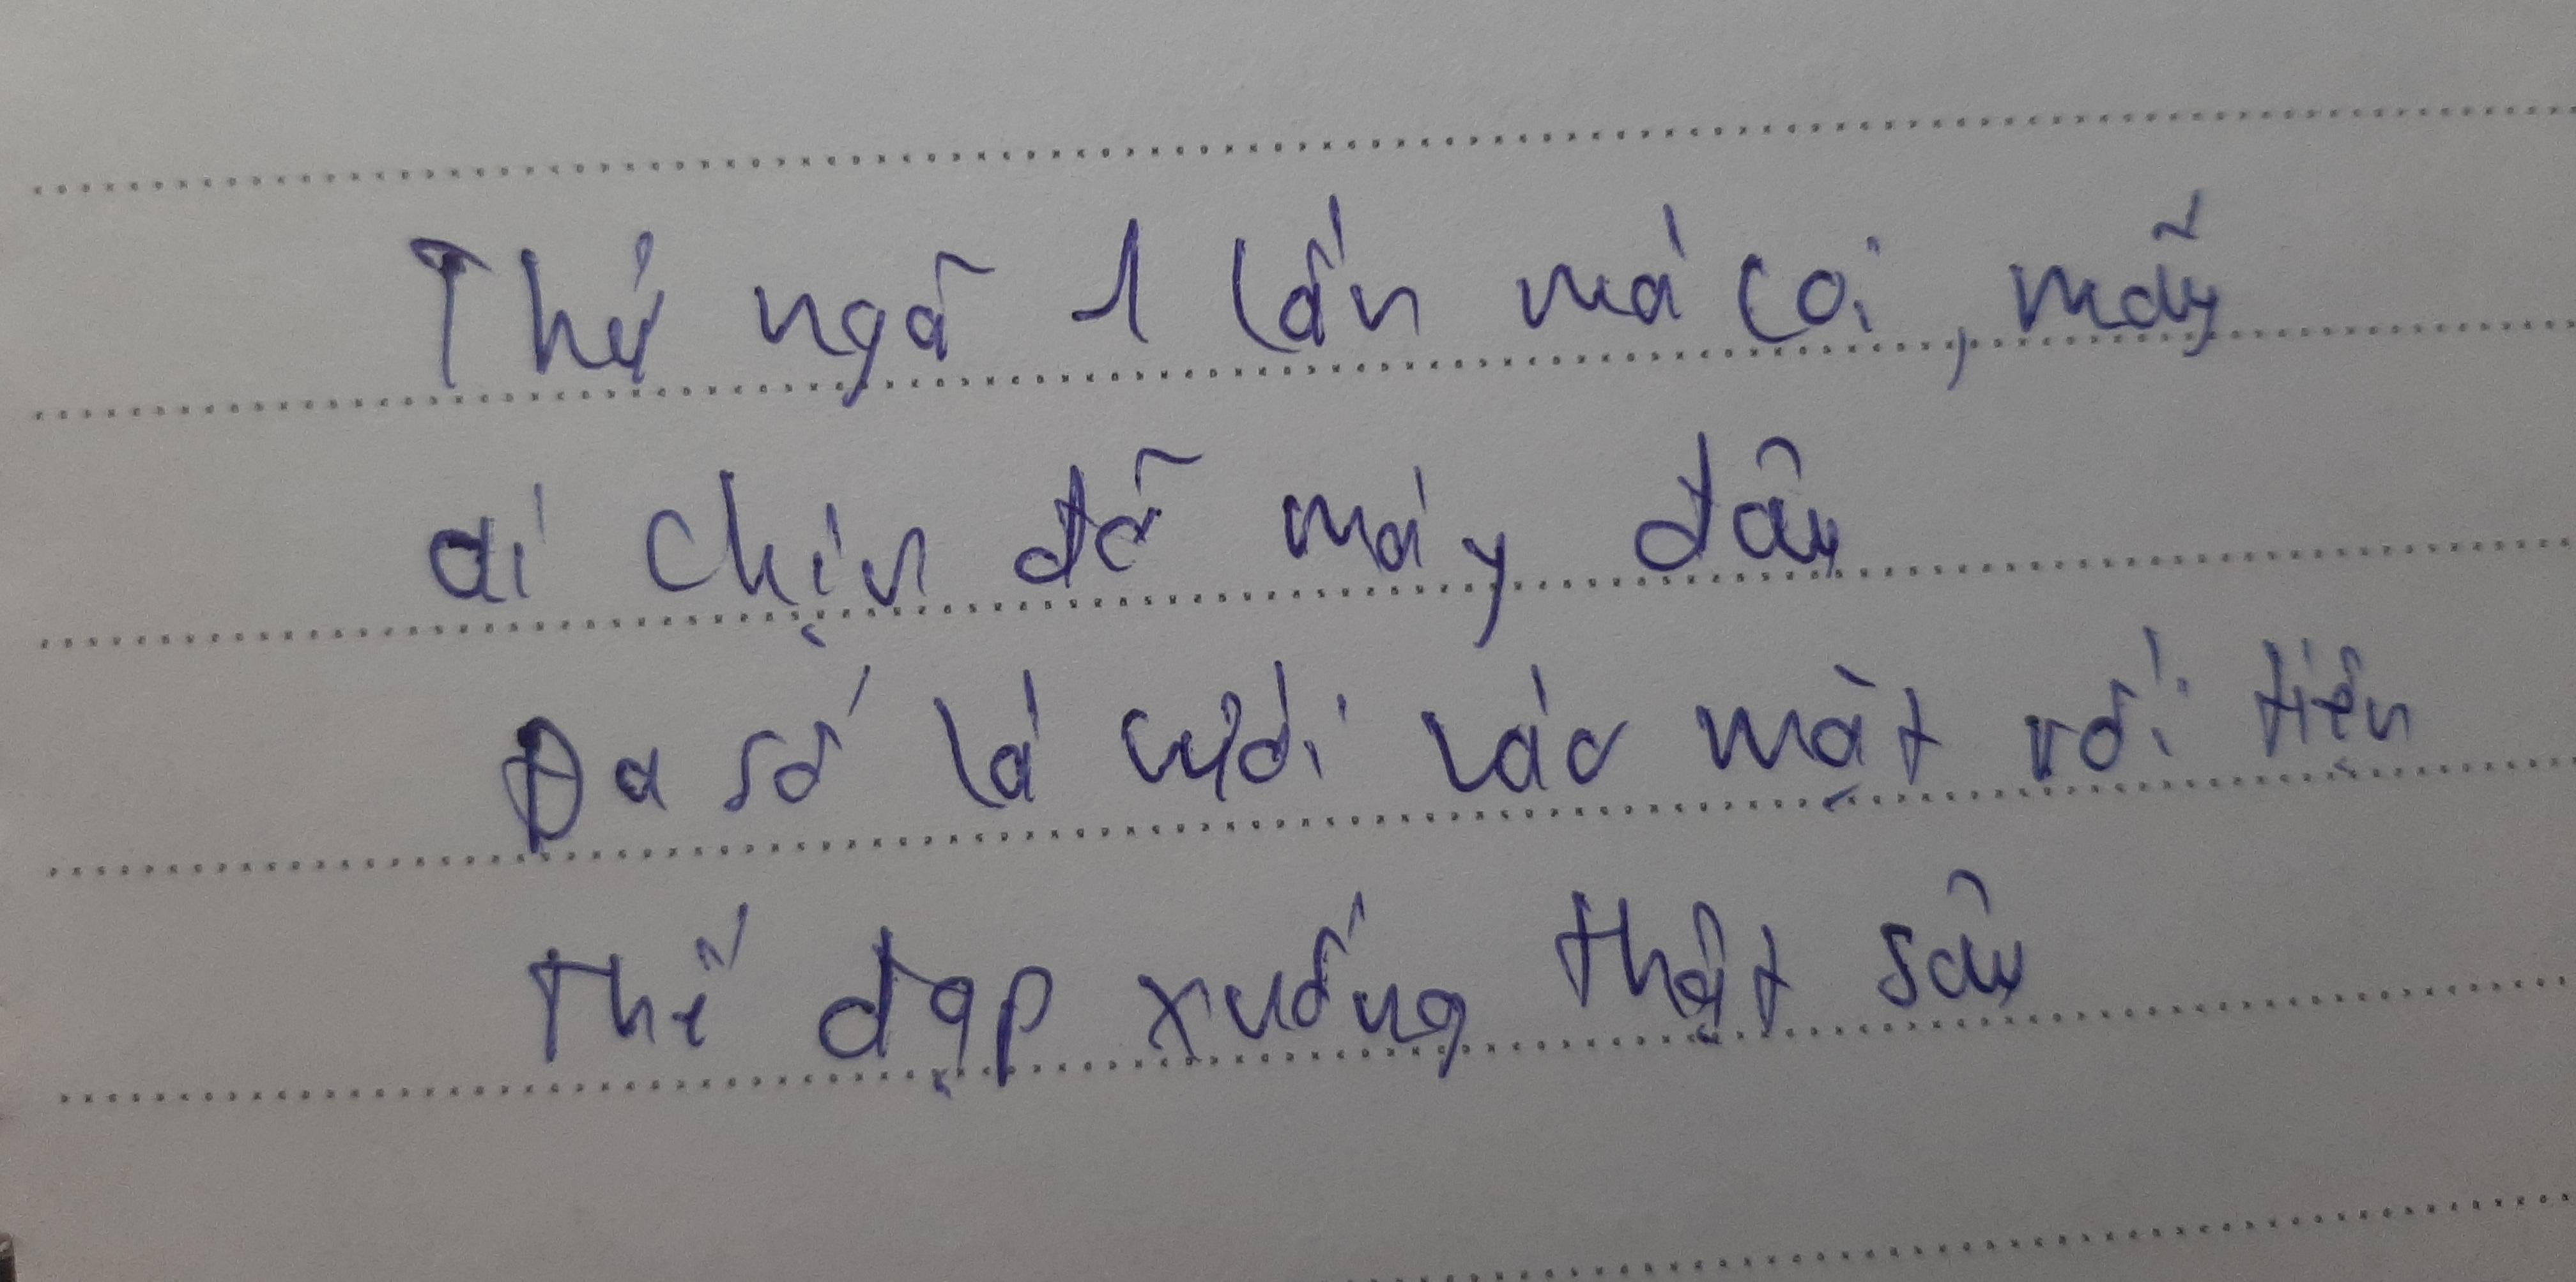 Thử ngã 1 lần mà coi, mấy
ai chịu đỡ mày đâu
Đa số là cười vào mặt rồi tiện
thể đạp xuống thật sâu